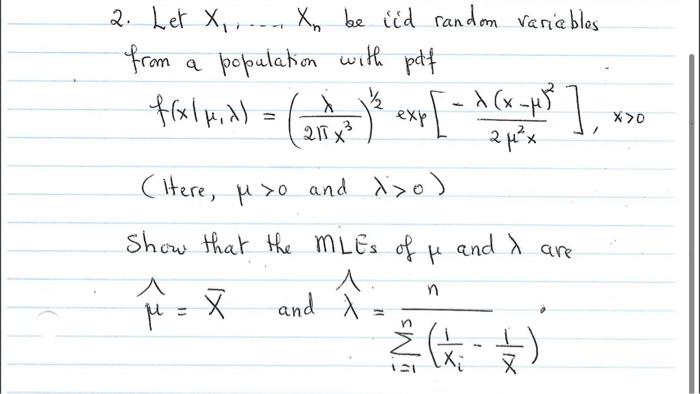 2. Let X₁, ...., Xₙ be iid random variables
from a population with pdf
f(x|μ,λ) = (λ / 2πx³)^½ exp[ -λ(x-μ)² / 2μ²x ], x>0
(Here, μ>0 and λ>0)
Show that the MLEs of μ and λ are
μ̂ = X̄ and λ̂ = n / Σᵢ₌₁ⁿ (1/Xᵢ - 1/X̄).